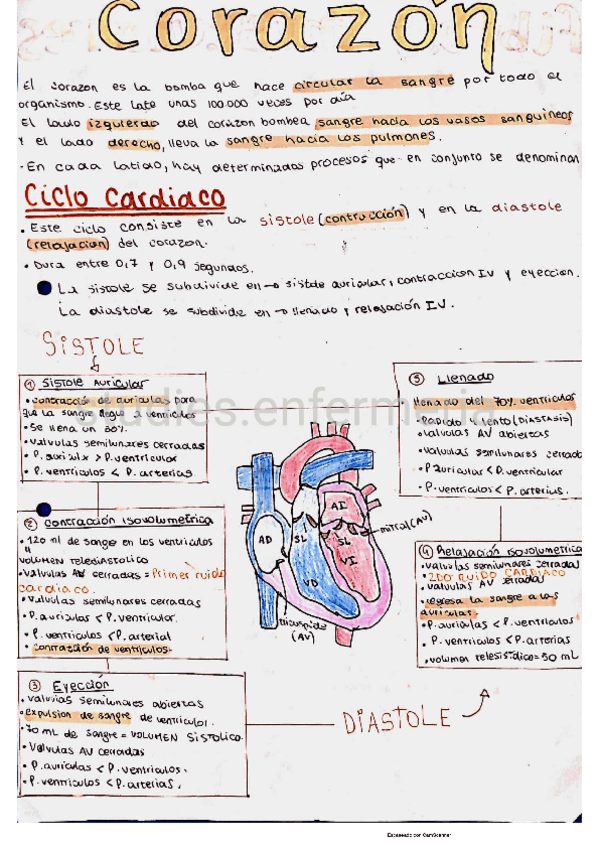 Corazón
El corazon es la bomba que hace circular la sangre por todo el
organismo. Este late unas 100.000 veces por día
El lado izquierdo del corazon bombea sangre hacia los vasos sanguineos
y el lado derecho, lleva la sangre hacia los pulmones.
- En cada latido, hay determinados procesos que en conjunto se denominan
Ciclo Cardiaco
• Este ciclo consiste en la sistole (contracción) y en la diastole
(relajacion) del corazon.
• Dura entre 0,7 y 0,9 segundos.
La sistole se subdivide en → sistole auricular, contraccion IV y eyeccion.
La diastole se subdivide en → llenado y relajación IV.
SISTOLE
① Sistole Auricular
• contracción de auriculas para
que la sangre llegue a ventriculos
• Se llena un 30%.
• valvulas semilunares cerradas
• P. auricular > P. ventricular
• P. ventriculos < P. arterias
② contracción isovolumetrica
• 120 ml de sangre en los ventriculos
"
volumen telediastolico
• valvulas AV cerradas = Primer ruido
cardiaco.
• valvulas semilunares cerradas
• P. auriculas < P. ventricular.
• P. ventriculos < P. arterial
• contracción de ventriculos.
③ Eyección
• valvulas semilunares abiertas
• expulsion de sangre de ventriculos.
• 70 mL de sangre = volumen sistolico.
• Valvulas AV cerradas
• P. auriculas < P. ventriculos.
• P. ventriculos < P. arterias.
studies.enfermeria
AD
SL
VD
AI
SL
VI
mitral (AV)
tricuspide
(AV)
⑤ Llenado
llenado del 70% ventriculos
• Rapido y lento (diastasis)
• valvulas AV abiertas
• valvulas semilunares cerrado
• P auricular < P. ventricular
• P. ventriculos < P. arterias.
④ Relajación isovolumetrica
• valvulas semilunares cerradas
• 2DO RUIDO CARDIACO
• valvulas AV cerradas
• regresa la sangre a las
auriculas.
• P. auriculas < P. ventriculos
• P. ventriculos < P. arterias
• volumen telesistolico = 50 mL
DIASTOLE
Escaneado con CamScanner